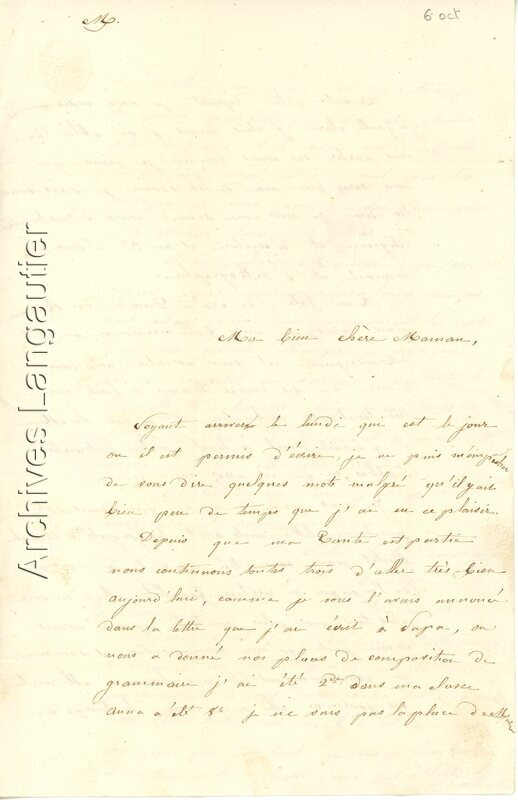 M.
6 oct
Archives Langautier
Ma bien chère Maman,
Voyant arriver le lundi qui est le jour
ou il est permis d'écrire, je ne puis m'empêcher
de vous dire quelques mots malgré qu'il y ait
bien peu de temps que j'ai eu ce plaisir.
Depuis que ma Tante est partie
nous continuons toutes trois d'aller très bien
aujourd'hui, comme je vous l'avais annoncé
dans la lettre que j'ai écrit à Papa, on
nous a donné nos places de composition de
grammaire j'ai été 2de dans ma classe
anna a été 8e je ne sais pas la place de